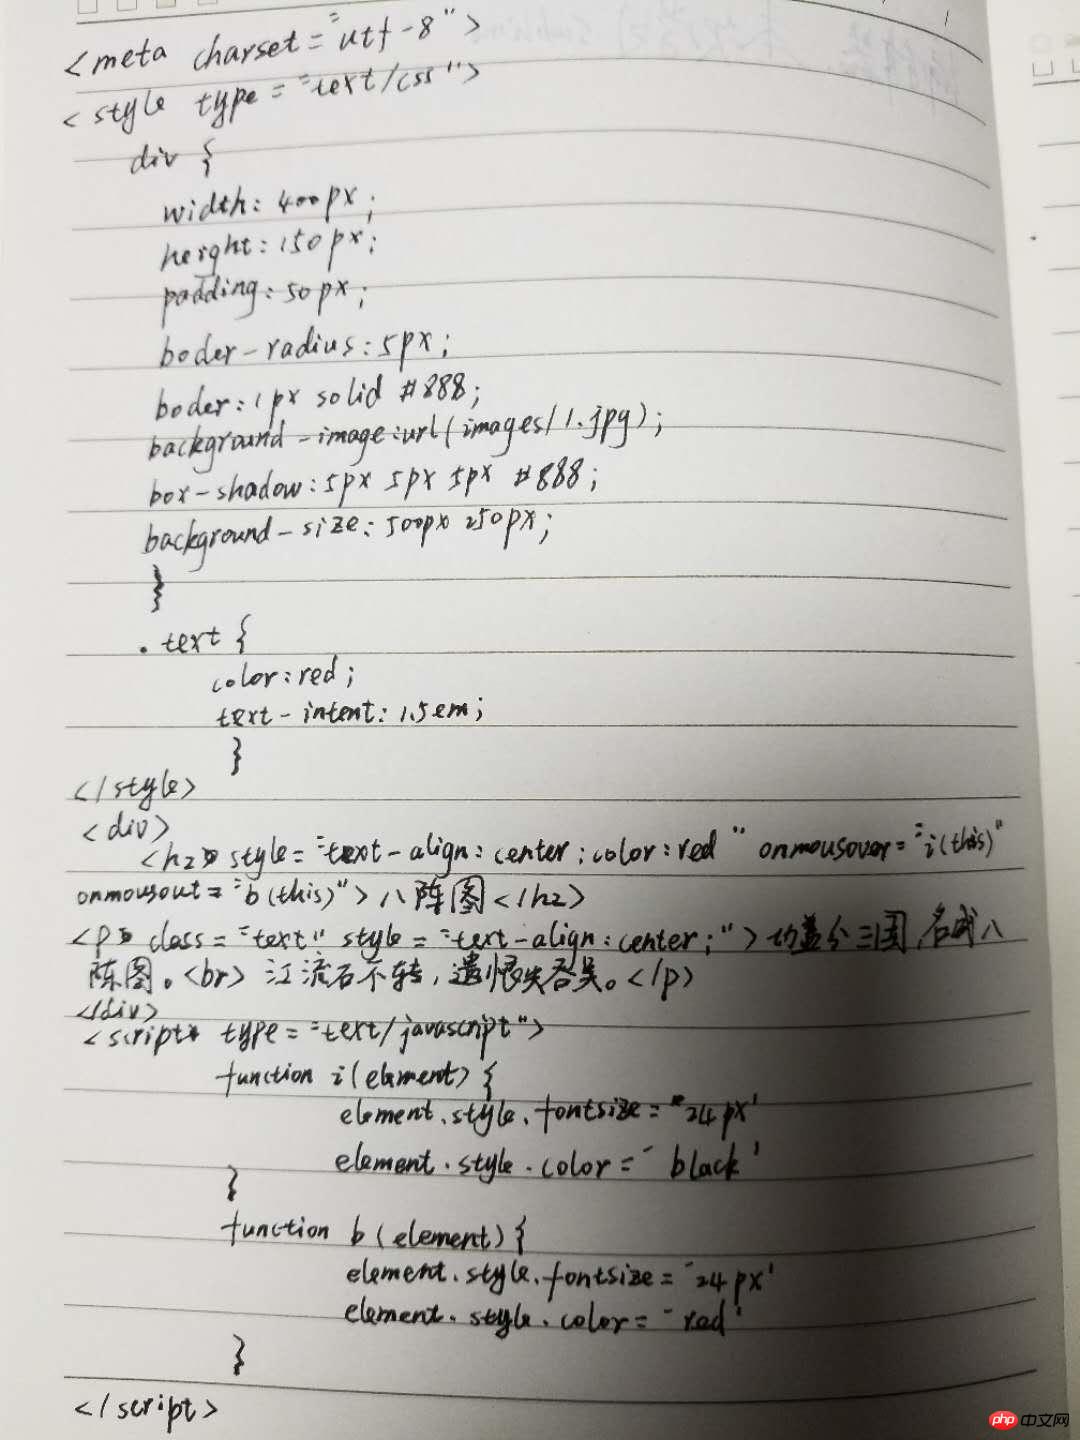 <meta charset="utf-8">
<style type="text/css">
div {
width: 400px;
height: 150px;
padding: 50px;
boder-radius: 5px;
boder: 1px solid #888;
background-image: url(images/1.jpg);
box-shadow: 5px 5px 5px #888;
background-size: 500px 250px;
}
.text {
color: red;
text-intent: 1.5em;
}
</style>
<div>
<h2 style="text-align: center; color: red" onmousover="i(this)"
onmousout="b(this)">八阵图</h2>
<p class="text" style="text-align: center;">功盖分三国,名成八
阵图。<br>江流石不转,遗恨失吞吴。</p>
</div>
<script type="text/javascript">
function i(element) {
element.style.fontsize='24px'
element.style.color='black'
}
function b(element) {
element.style.fontsize='24px'
element.style.color='red'
}
</script>
php 中文网